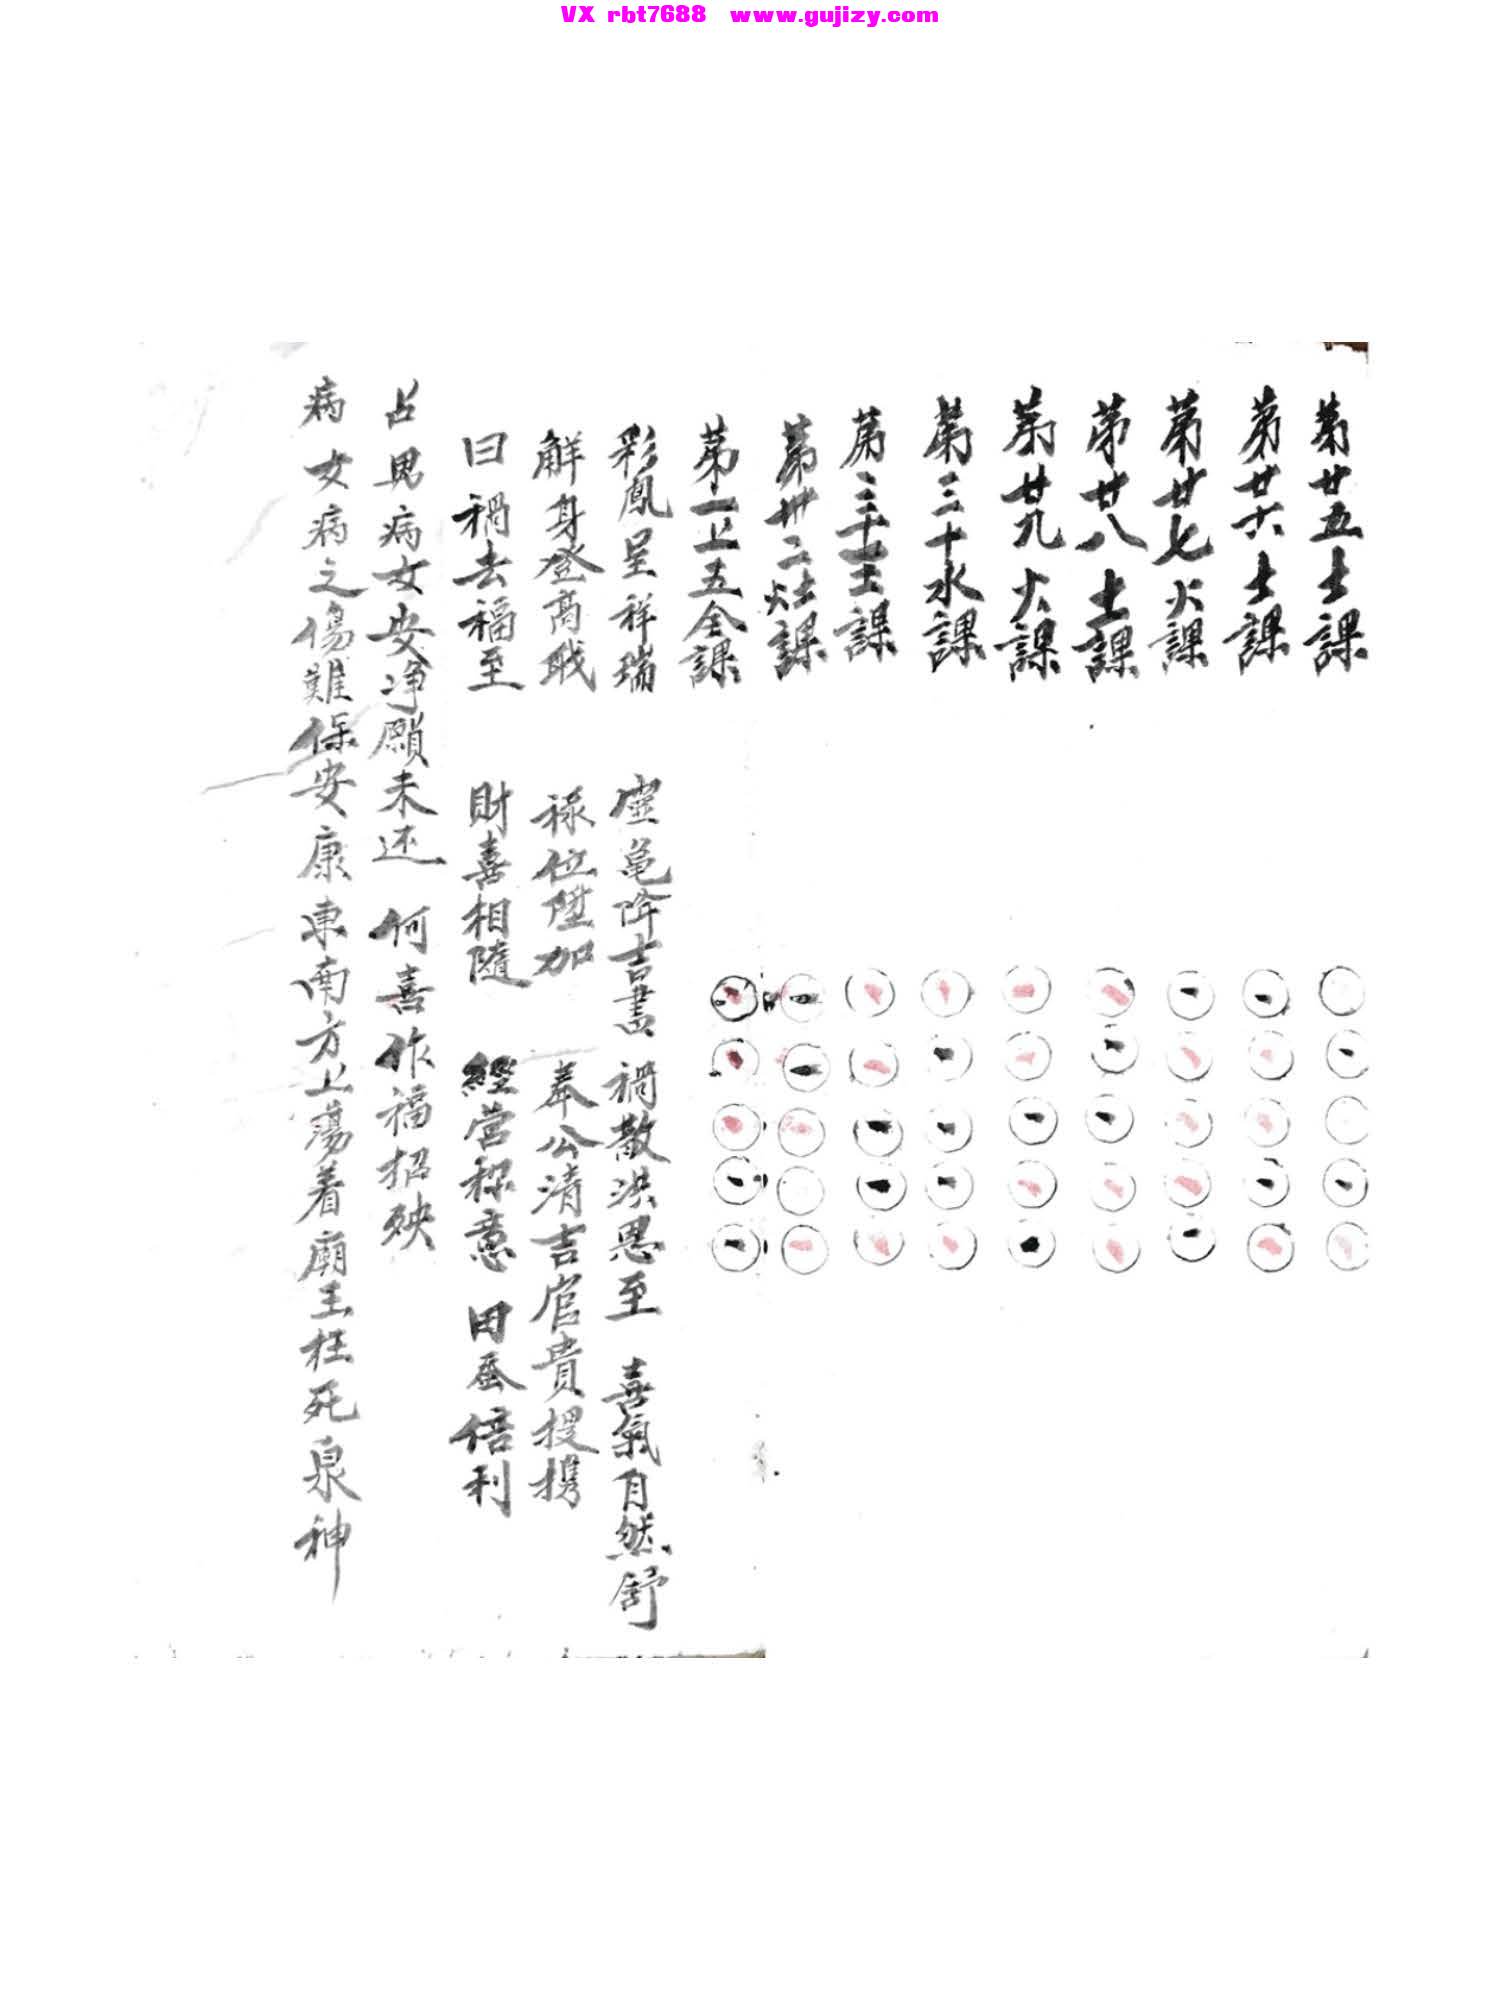 VX rbt7688 www.gujizy.com
第廿五土課
第廿六土課
第廿七火課
第廿八土課
第廿九火課
第三十水課
第三十一土課
第卅二土課
第一上五金課
彩鳳呈祥瑞 灵亀降吉書 禍散洪恩至 喜氣自然舒
解身登高戝 禄位陞加 奉公清吉 官貴提携
曰禍去福至 財喜相隨 經营称意 田蚕倍利
占男病女安净願未还 何喜作福招殃
病女病之傷難保安康東南方上蕩着廟王枉死泉神